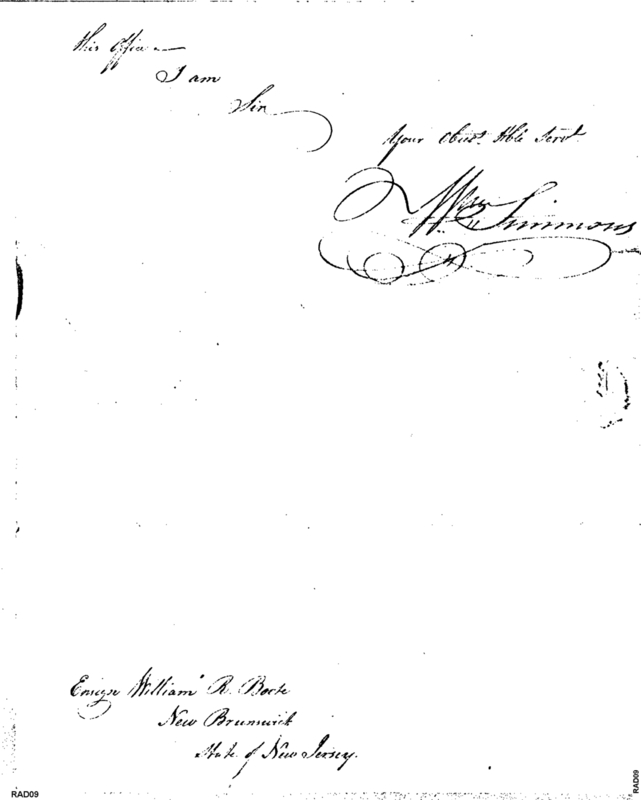 this office
I am
Sir
Your obedt. Hble Servt.
Wm Simmons
Ensign William R. Boote
New Brunswick
State of New Jersey.
RAD09
RAD09